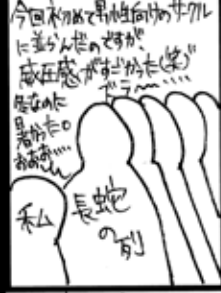 今回初めて男性向けのサークル
に並らんだのですが、
威圧感がすごかった(笑)
冬なのに
暑かった。
おおお
ズラ〜
私
長蛇
の列